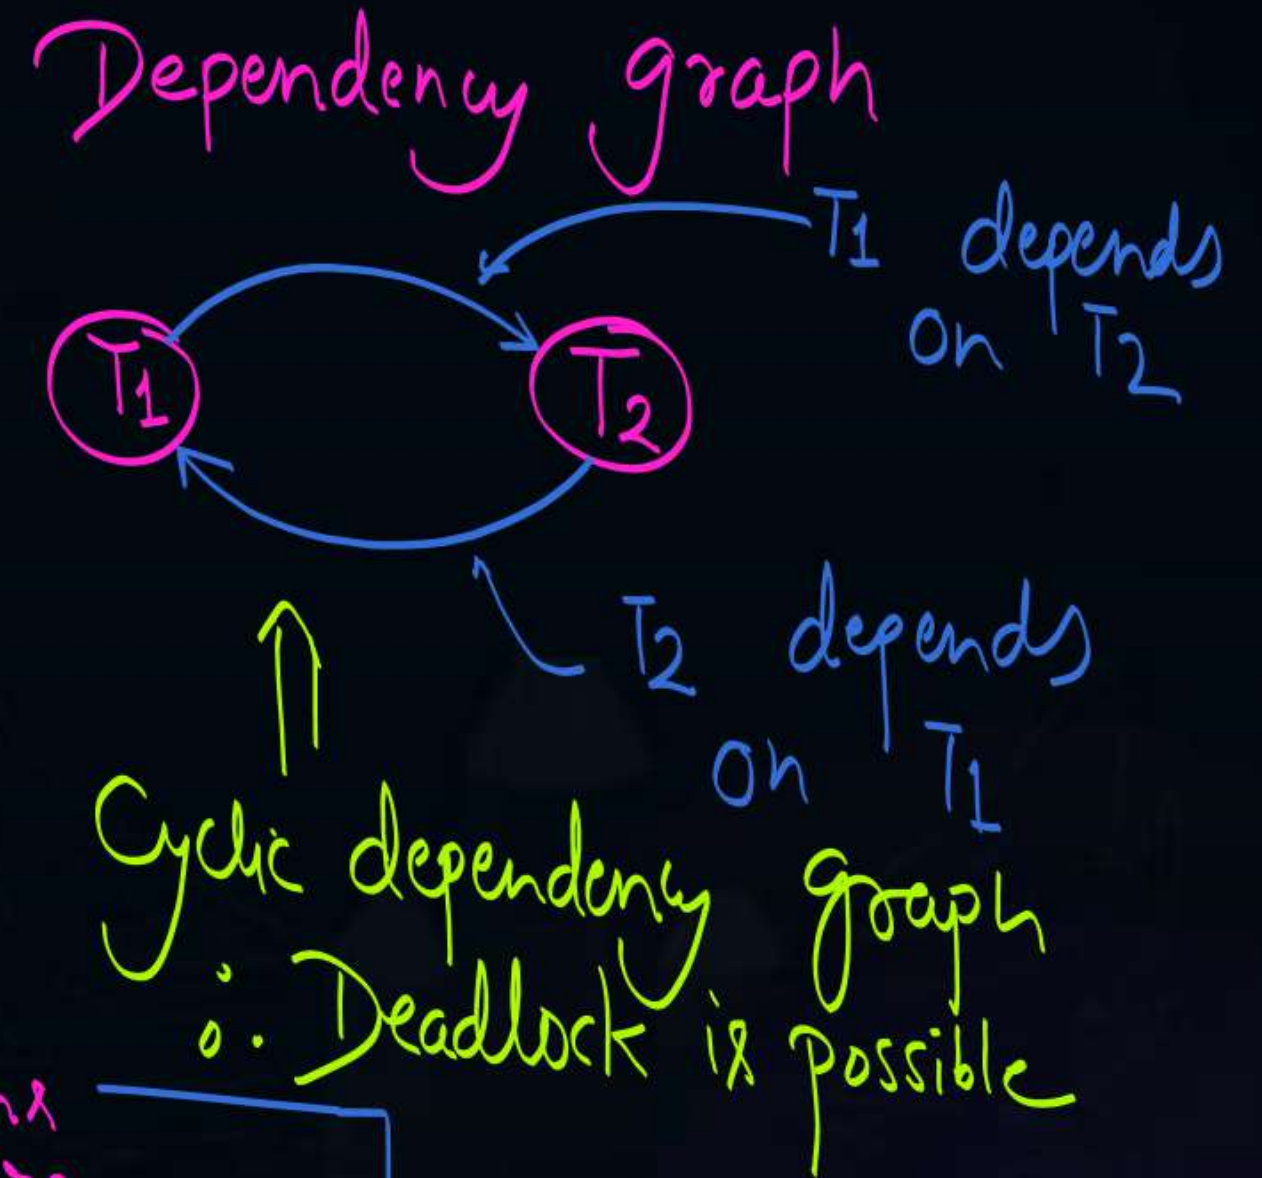 Dependency graph
T1 depends
on T2
T1
T2
T2 depends
on T1
Cyclic dependency graph
∴ Deadlock is possible